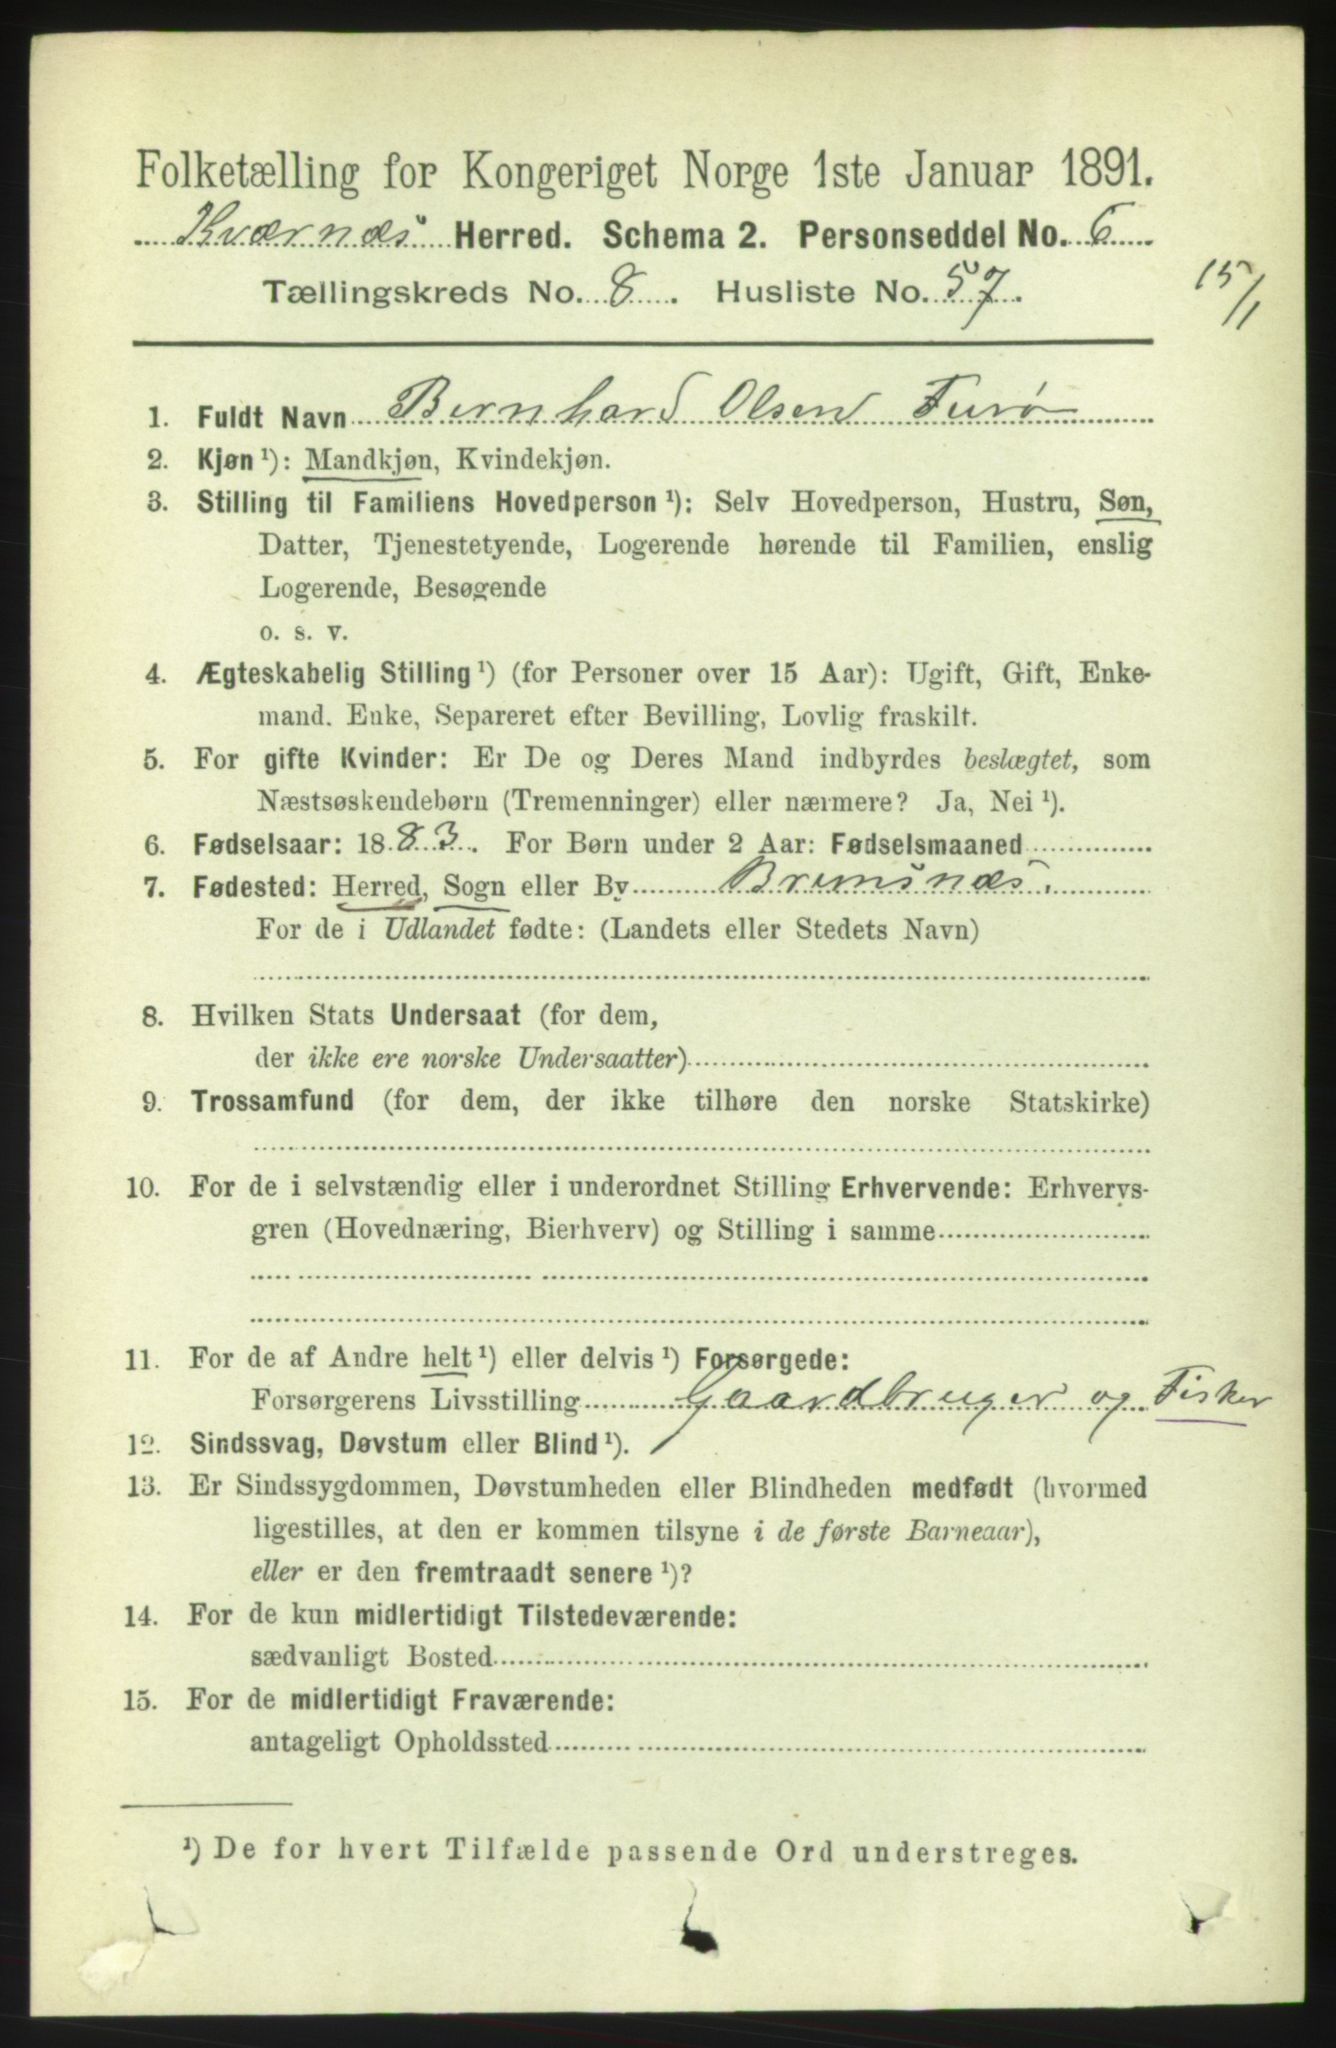 Folketælling for Kongeriget Norge 1ste Januar 1891.
Kværnæs Herred. Schema 2. Personseddel No. 6
Tællingskreds No. 8. Husliste No. 57.
15/1
1. Fuldt Navn Bernhard Olsen Furø
2. Kjøn ¹): Mandkjøn, Kvindekjøn.
3. Stilling til Familiens Hovedperson ¹): Selv Hovedperson, Hustru, Søn,
Datter, Tjenestetyende, Logerende hørende til Familien, enslig
Logerende, Besøgende
o. s. v.
4. Ægteskabelig Stilling ¹) (for Personer over 15 Aar): Ugift, Gift, Enke-
mand. Enke, Separeret efter Bevilling, Lovlig fraskilt.
5. For gifte Kvinder: Er De og Deres Mand indbyrdes beslægtet, som
Næstsøskendebørn (Tremenninger) eller nærmere? Ja, Nei ¹).
6. Fødselsaar: 1883. For Børn under 2 Aar: Fødselsmaaned
7. Fødested: Herred, Sogn eller By Bremsnæs.
For de i Udlandet fødte: (Landets eller Stedets Navn)
8. Hvilken Stats Undersaat (for dem,
der ikke ere norske Undersaatter)
9. Trossamfund (for dem, der ikke tilhøre den norske Statskirke)
10. For de i selvstændig eller i underordnet Stilling Erhvervende: Erhvervs-
gren (Hovednæring, Bierhverv) og Stilling i samme
11. For de af Andre helt ¹) eller delvis ¹) Forsørgede:
Forsørgerens Livsstilling Gaardbruger og Fisker
12. Sindssvag, Døvstum eller Blind ¹).
13. Er Sindssygdommen, Døvstumheden eller Blindheden medfødt (hvormed
ligestilles, at den er kommen tilsyne i de første Barneaar),
eller er den fremtraadt senere ¹)?
14. For de kun midlertidigt Tilstedeværende:
sædvanligt Bosted
15. For de midlertidigt Fraværende:
antageligt Opholdssted
¹) De for hvert Tilfælde passende Ord understreges.